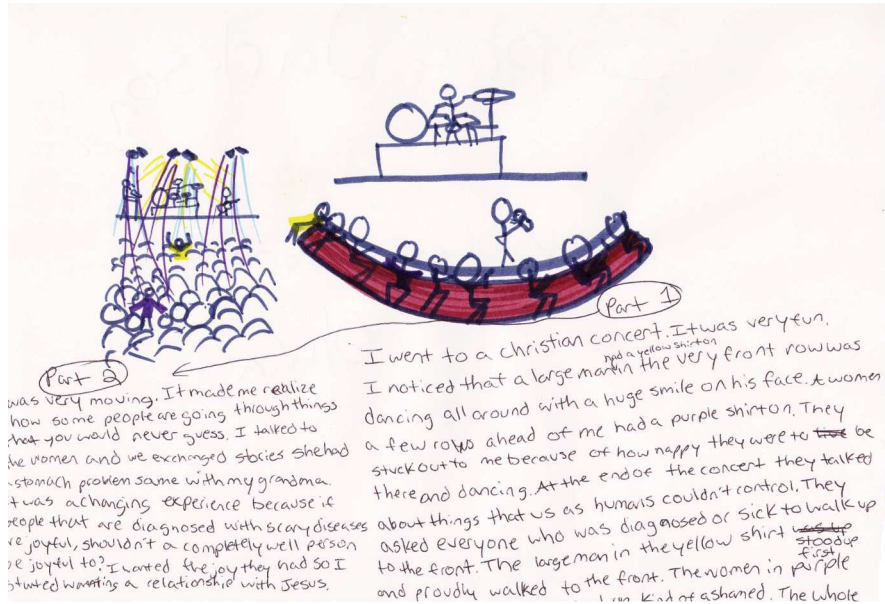 Part 1
I went to a christian concert. It was very fun.
I noticed that a large man had a yellow shirt on in the very front row was
dancing all around with a huge smile on his face. A women
a few rows ahead of me had a purple shirt on. They
stuck out to me because of how happy they were to be
there and dancing. At the end of the concert they talked
about things that us as humans couldn't control. They
asked everyone who was diagnosed or sick to walk up
to the front. The large man in the yellow shirt stood up first
and proudly walked to the front. The women in purple
kind of ashamed. The whole
Part 2
was very moving. It made me realize
how some people are going through things
that you would never guess. I talked to
the women and we exchanged stories she had
stomach problem same with my grandma.
was a changing experience because if
people that are diagnosed with scary diseases
joyful, shouldn't a completely well person
be joyful to? I wanted the joy they had so I
started wanting a relationship with Jesus.